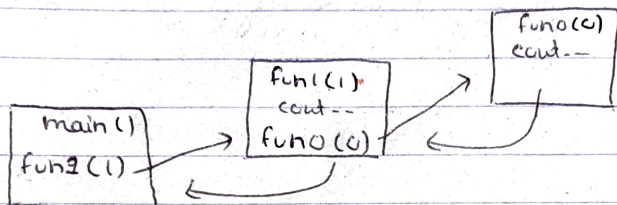 main()
fun1(1)
fun1(1)
cout--
fun0(0)
fun0(0)
cout--